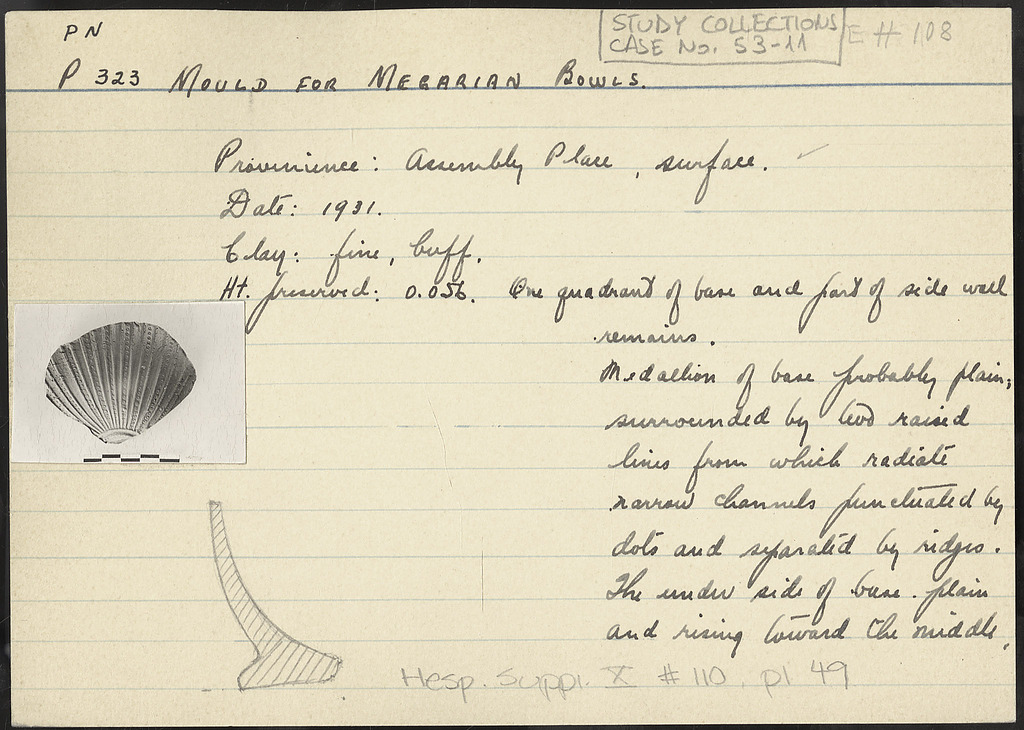 PN
STUDY COLLECTIONS
CASE No. 53-11
E # 108
P 323 MOULD FOR MEGARIAN BOWLS.
Provinience: Assembly Place, surface. ✓
Date: 1931.
Clay: fine, buff.
Ht. preserved: 0.056. One quadrant of base and part of side wall
remains.
Medallion of base probably plain;
surrounded by two raised
lines from which radiate
narrow channels punctuated by
dots and separated by ridges.
The under side of base plain
and rising toward the middle.
Hesp. Suppl. X # 110, pl 49